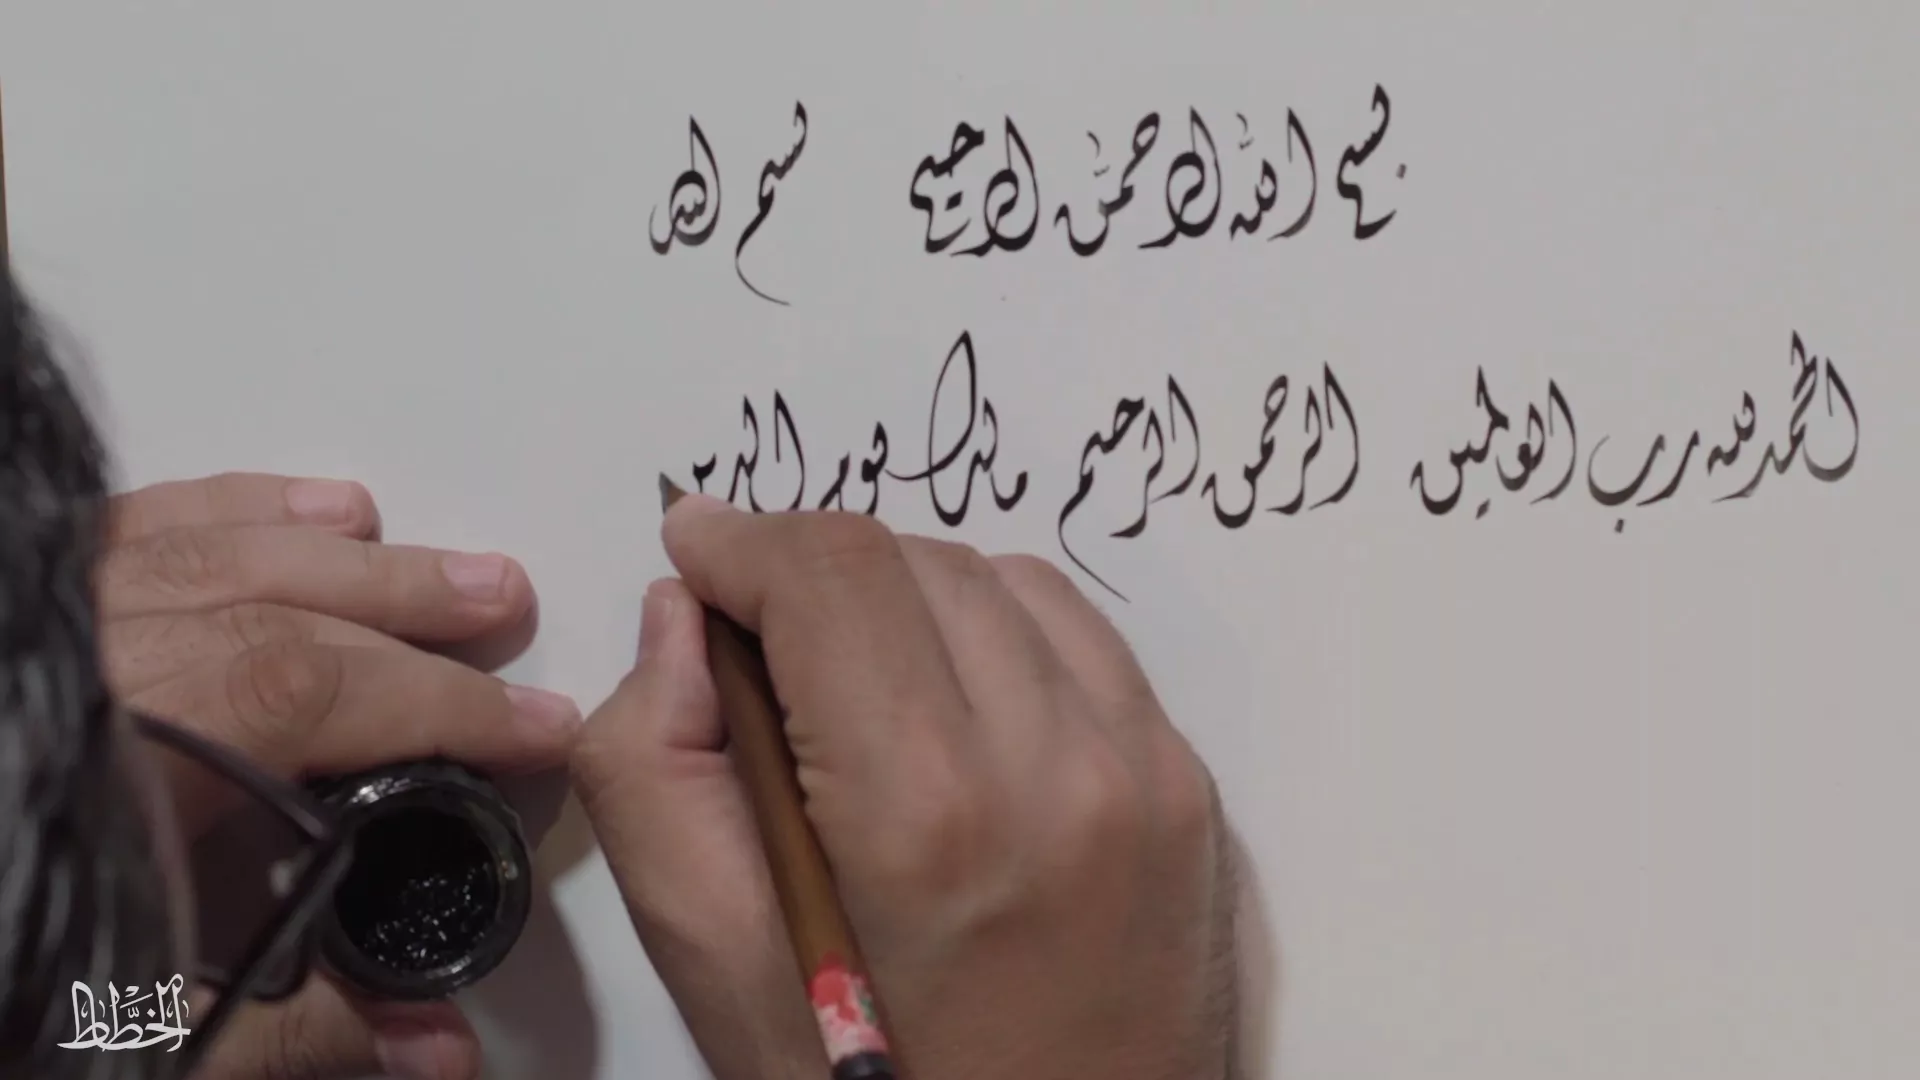 بسم الله الرحمن الرحيم بسم الله
الحمد لله رب العالمين الرحمن الرحيم مالك يوم الدين
الخطاط